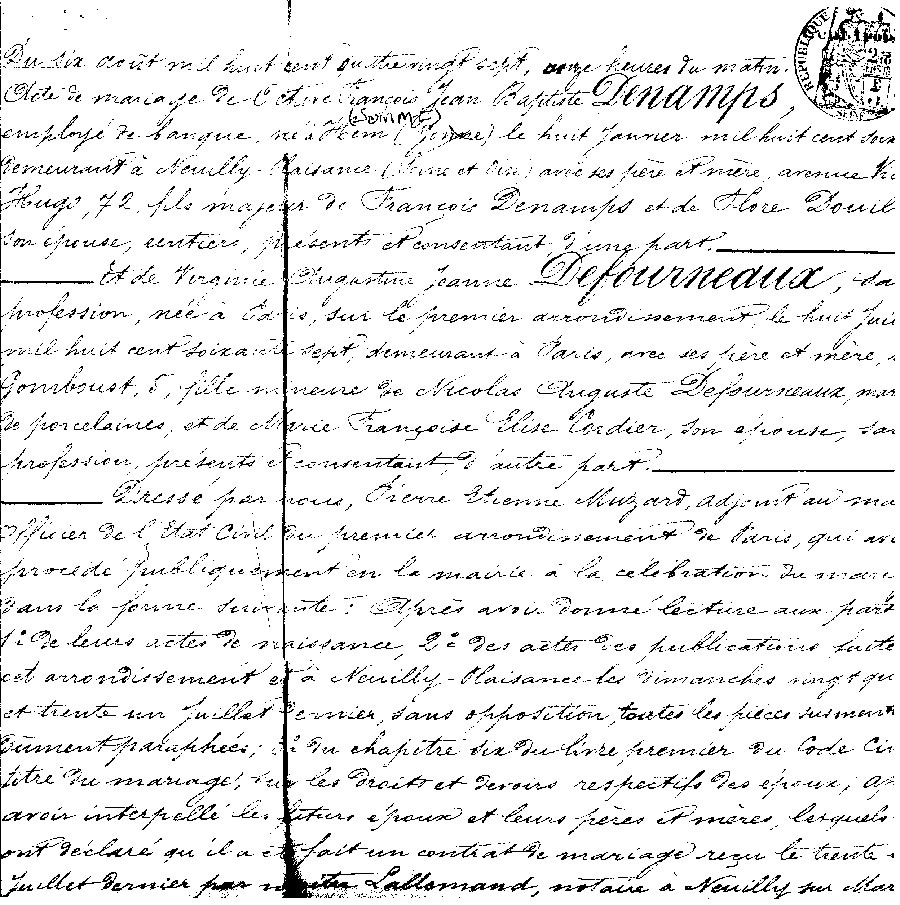 Du six août mil huit cent quatre vingt sept, onze heures du matin.
Acte de mariage de Octave François Jean Baptiste Denamps,
(Somme)
employé de banque, né à Hem (Somme) le huit Janvier mil huit cent soix
demeurant à Neuilly-Plaisance (Seine et Oise) avec ses père et mère, avenue Vic
Hugo, 72, fils majeur de François Denamps et de Flore Douil
son épouse, rentiers, présents et consentant d'une part.
Et de Virginie Augustine Jeanne Defourneaux, sa
profession, née à Paris, sur le premier arrondissement, le huit Jui
mil huit cent soixante sept, demeurant à Paris, avec ses père et mère,
Gomboust, 5, fille mineure de Nicolas Auguste Defourneaux, mar
de porcelaines, et de Marie Françoise Elise Cordier, son épouse, san
profession, présents et consentant, d'autre part.
Dressé par nous, Pierre Etienne Muzard, adjoint au ma
Officier de l'Etat Civil du premier arrondissement de Paris, qui avo
procédé publiquement en la mairie à la célébration du mari
dans la forme suivante: Après avoir donné lecture aux part
1º de leurs actes de naissance, 2º des actes des publications faite
cet arrondissement et à Neuilly-Plaisance les dimanches vingt qu
et trente un Juillet dernier, sans opposition, toutes les pièces susment
dûment paraphées; 3º du chapitre six du livre premier du Code Civ
titre du mariage, sur les droits et devoirs respectifs des époux; Ap
avoir interpellé les futurs époux et leurs pères et mères, lesquels
ont déclaré qu'il a été fait un contrat de mariage reçu le trente
Juillet dernier par maître Lallemand, notaire à Neuilly sur Mar
RÉPUBLIQUE